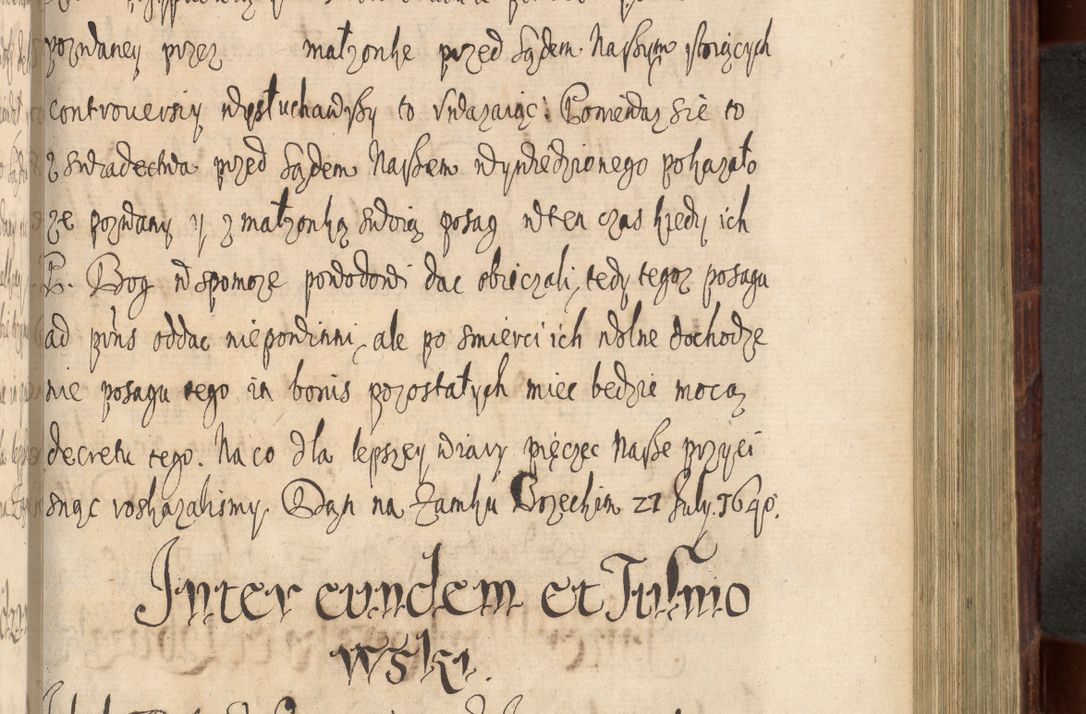 pozwaney przez małzonke przed Sądem Naszym stoiących
controversiy wysłuchawszy to vważaiąc: Ponieważ sie to
z swiadectwa przed Sądem Naszem wywiedzionego pokazało
ze pozwany y z małzonką swoią posag wten czas kiedy ich
P. Bog wspomoze powodowi dac obieczali, tedy tegoz posagu
ad pr̃ns oddac niepowinni, ale po smierci ich wolne dochodze
nie posagu tego in bonis pozostałych miec bedzie mocą
decretu tego. Na co dla lepszey wiary pięczęc Nasze przyci
snąc roskazalismy. Dan na Zamku Brzeskim 21 July. 1640.
Inter eundem et Jusino
wski.